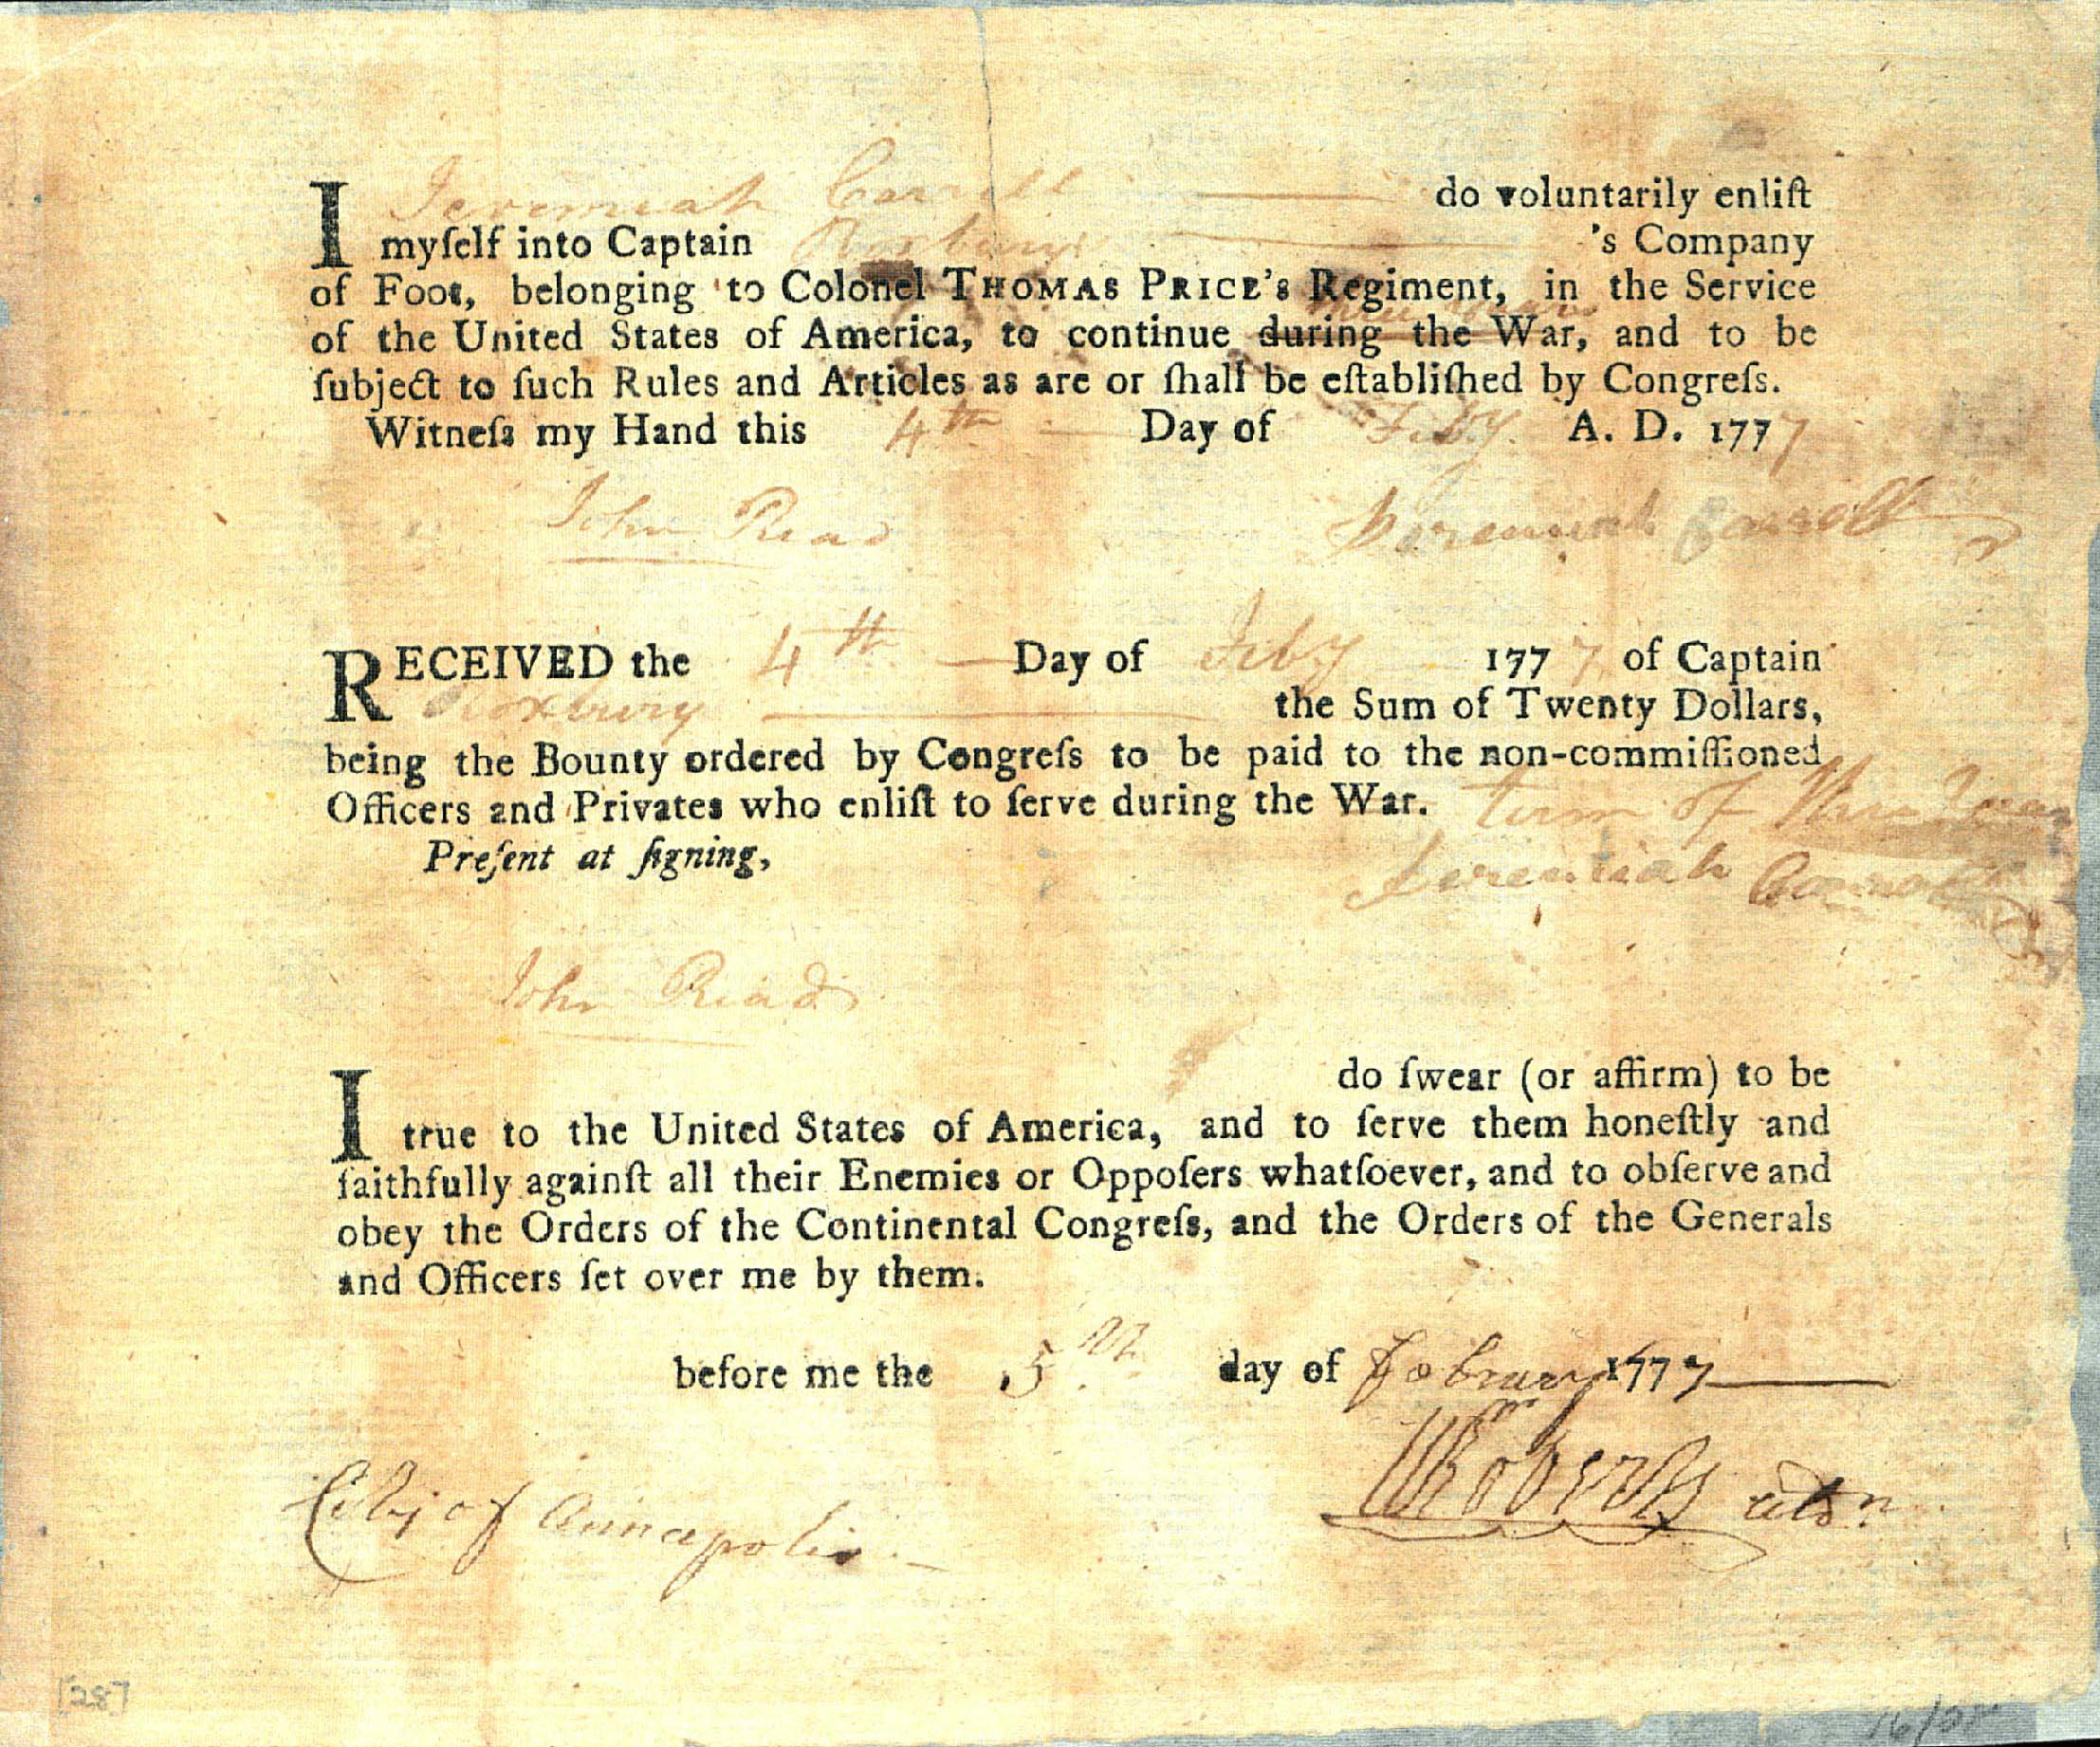 I Jeremiah Carroll do voluntarily enliſt
myſelf into Captain Roxbury 's Company
of Foot, belonging to Colonel THOMAS PRICE's Regiment, in the Service
three years
of the United States of America, to continue during the War, and to be
ſubject to ſuch Rules and Articles as are or ſhall be eſtabliſhed by Congreſs.
Witneſs my Hand this 4th Day of Feby. A. D. 1777
John Read Jeremiah Carroll
RECEIVED the 4th Day of Feby 1777 of Captain
Roxbury the Sum of Twenty Dollars,
being the Bounty ordered by Congreſs to be paid to the non-commiſſioned
Officers and Privates who enliſt to ſerve during the War. term of three Years
Preſent at ſigning, Jeremiah Carroll
John Read
I do ſwear (or affirm) to be
true to the United States of America, and to ſerve them honeſtly and
faithfully againſt all their Enemies or Oppoſers whatſoever, and to obſerve and
obey the Orders of the Continental Congreſs, and the Orders of the Generals
and Officers ſet over me by them.
before me the 5th day of Februery 1777
City of Annapolis Wm Roberts
287